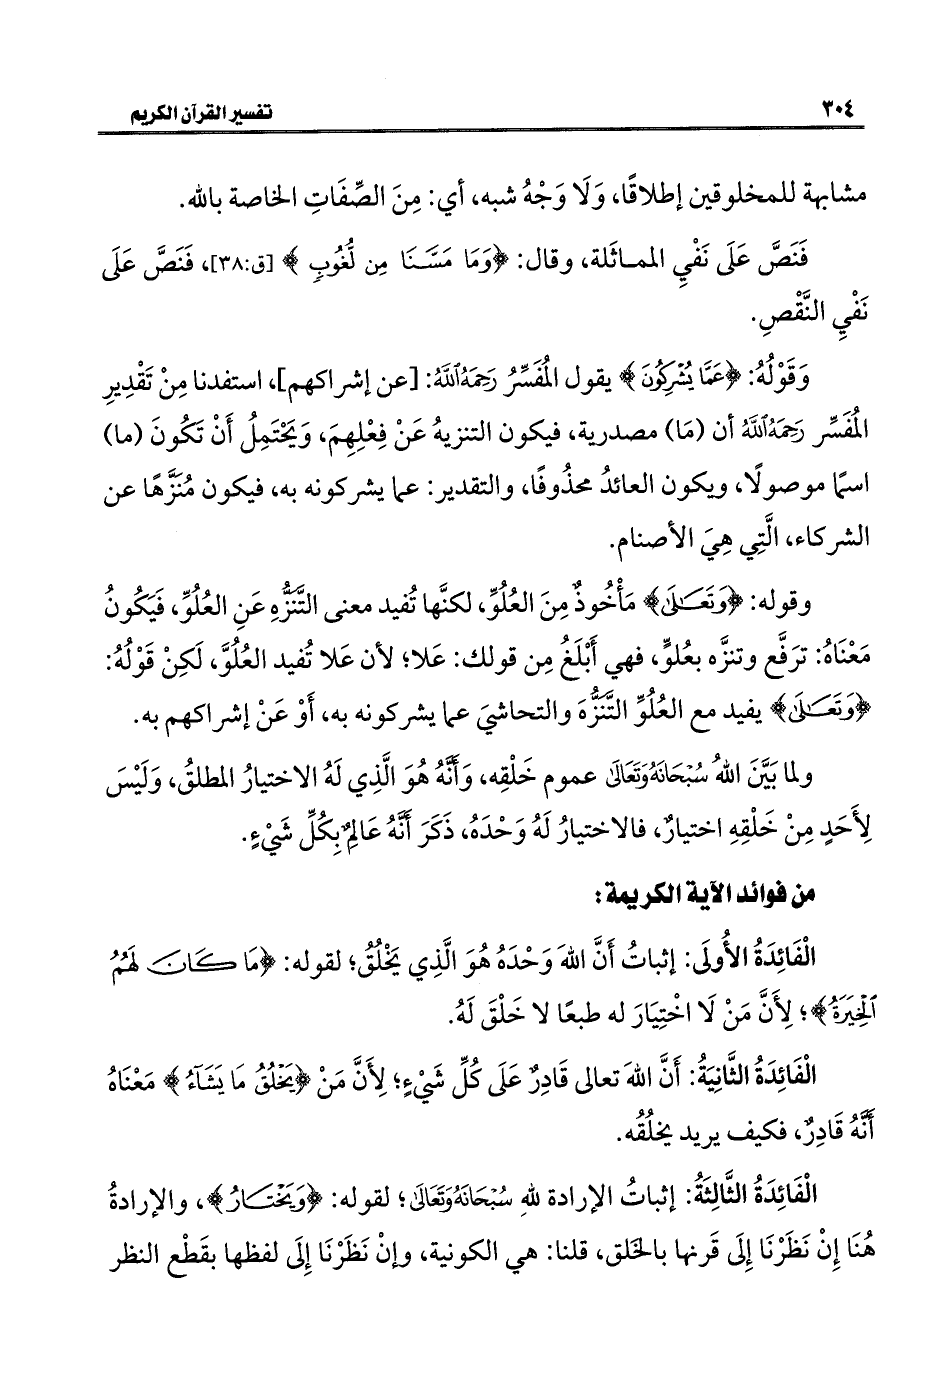 ٣٠٤ تفسير القرآن الكريم
مشابهة للمخلوقين إطلاقًا، وَلَا وَجْهُ شبه، أي: مِنَ الصِّفَاتِ الخاصة بالله.
فَنَصَّ عَلَى نَفْيِ المماثلة، وقال: ﴿وَمَا مَسَّنَا مِن لُّغُوبٍ﴾ [ق:٣٨]، فَنَصَّ عَلَى
نَفْيِ النَّقْصِ.
وَقَوْلُهُ: ﴿عَمَّا يُشْرِكُونَ﴾ يقول المُفَسِّرُ رَحِمَهُ اللَّهُ: [عن إشراكهم]، استفدنا مِنْ تَقْدِيرِ
المُفَسِّر رَحِمَهُ اللَّهُ أن (مَا) مصدرية، فيكون التنزيهُ عَنْ فِعْلِهِمَ، وَيَحْتَمِلُ أَنْ تَكُونَ (ما)
اسمًا موصولًا، ويكون العائدُ محذُوفًا، والتقدير: عما يشركونه به، فيكون مُنَزَّهًا عن
الشركاء، الَّتِي هِيَ الأصنام.
وقوله: ﴿وَتَعَالَىٰ﴾ مَأْخُوذٌ مِنَ العُلُوِّ، لكنَّها تُفيد معنى التَّنَزُّهِ عَنِ العُلُوِّ، فَيَكُونُ
مَعْنَاهُ: ترفَّع وتنزَّه بعُلوٍّ، فهي أَبْلَغُ مِن قولك: عَلا؛ لأن عَلا تُفيد العُلُوَّ، لَكِنْ قَوْلُهُ:
﴿وَتَعَالَىٰ﴾ يفيد مع العُلُوِّ التَّنَزُّهَ والتحاشيَ عما يشركونه به، أَوْ عَنْ إشراكهم به.
ولما بَيَّنَ اللهُ سُبْحَانَهُ وَتَعَالَى عموم خَلْقِه، وَأَنَّهُ هُوَ الَّذِي لَهُ الاختيارُ المطلقُ، وَلَيْسَ
لِأَحَدٍ مِنْ خَلْقِهِ اختيارٌ، فالاختيارُ لَهُ وَحْدَهُ، ذَكَرَ أَنَّهُ عَالِمٌ بِكُلِّ شَيْءٍ.
من فوائد الآية الكريمة:
الْفَائِدَةُ الأُولَى: إثباتُ أَنَّ اللهَ وَحْدَهُ هُوَ الَّذِي يَخْلُقُ؛ لقوله: ﴿مَا كَانَ لَهُمُ
الْخِيَرَةُ﴾؛ لِأَنَّ مَنْ لَا اخْتِيَارَ له طبعًا لا خَلْقَ لَهُ.
الْفَائِدَةُ الثَّانِيَةُ: أَنَّ اللهَ تعالى قَادِرٌ عَلَى كُلِّ شَيْءٍ؛ لِأَنَّ مَنْ ﴿يَخْلُقُ مَا يَشَآءُ﴾ مَعْنَاهُ
أَنَّهُ قَادِرٌ، فكيف يريد يخلُقُه.
الْفَائِدَةُ الثَّالِثَةُ: إثباتُ الإرادة للهِ سُبْحَانَهُ وَتَعَالَى؛ لقوله: ﴿وَيَخْتَارُ﴾، والإرادةُ
هُنَا إِنْ نَظَرْنَا إِلَى قَرنها بالخَلق، قلنا: هي الكونية، وإنْ نَظَرْنَا إِلَى لفظها بقَطْع النظر